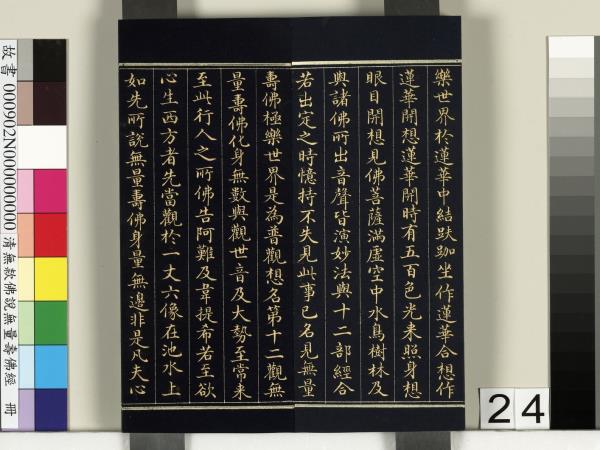 樂世界於蓮華中結趺跏坐作蓮華合想作
蓮華開想蓮華開時有五百色光来照身想
眼目開想見佛菩薩滿虛空中水鳥樹林及
與諸佛所出音聲皆演妙法與十二部經合
若出定之時憶持不失見此事已名見無量
壽佛極樂世界是為普觀想名第十二觀無
量壽佛化身無數與觀世音及大勢至常来
至此行人之所佛告阿難及韋提希若至欲
心生西方者先當觀於一丈六像在池水上
如先所說無量壽佛身量無邊非是凡夫心
故書 000902N000000000 清無款佛說無量壽佛經 冊
24